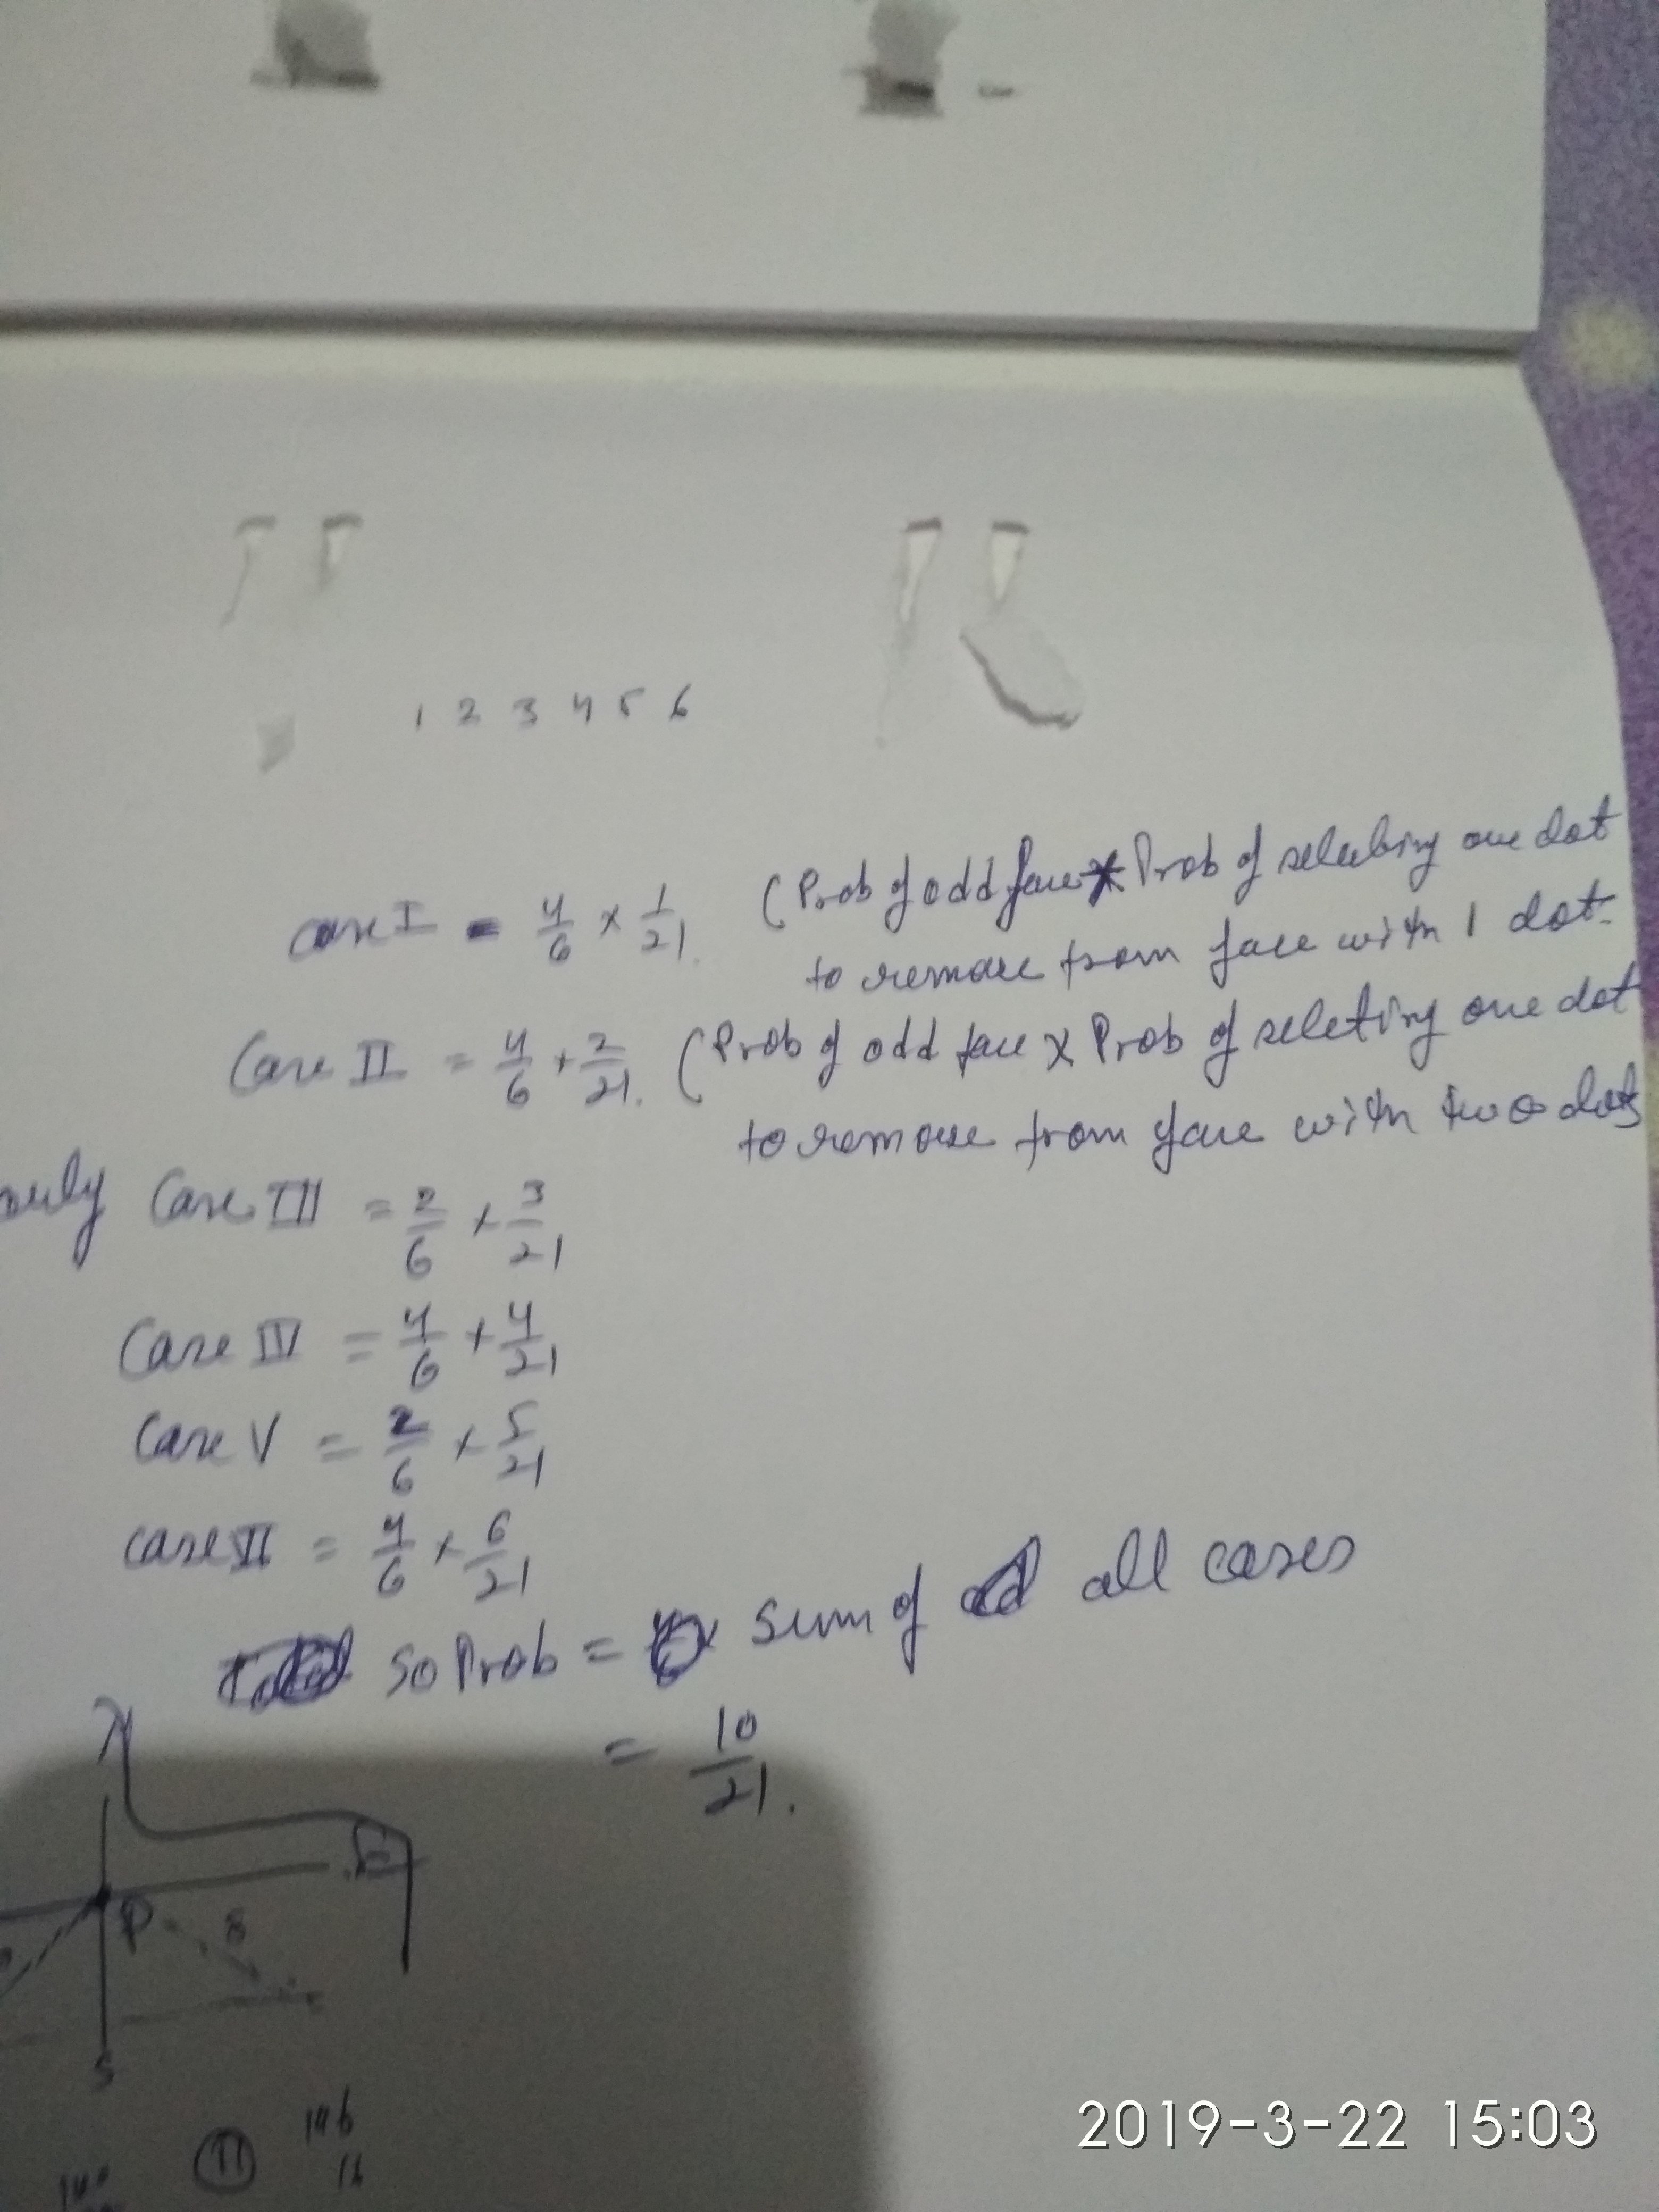 1 2 3 4 5 6
case I = 4/6 × 1/21. (Prob of odd face × Prob of selecting one dot
to remove from face with 1 dot.
Case II = 4/6 × 2/21. (Prob of odd face × Prob of seleting one dot
to remove from face with two dots
Case III = 2/6 × 3/21
Case IV = 4/6 × 4/21
Case V = 2/6 × 5/21
case VI = 4/6 × 6/21
so Prob = sum of all cases
= 10/21.
P 8
S
11 146
16
2019-3-22 15:03